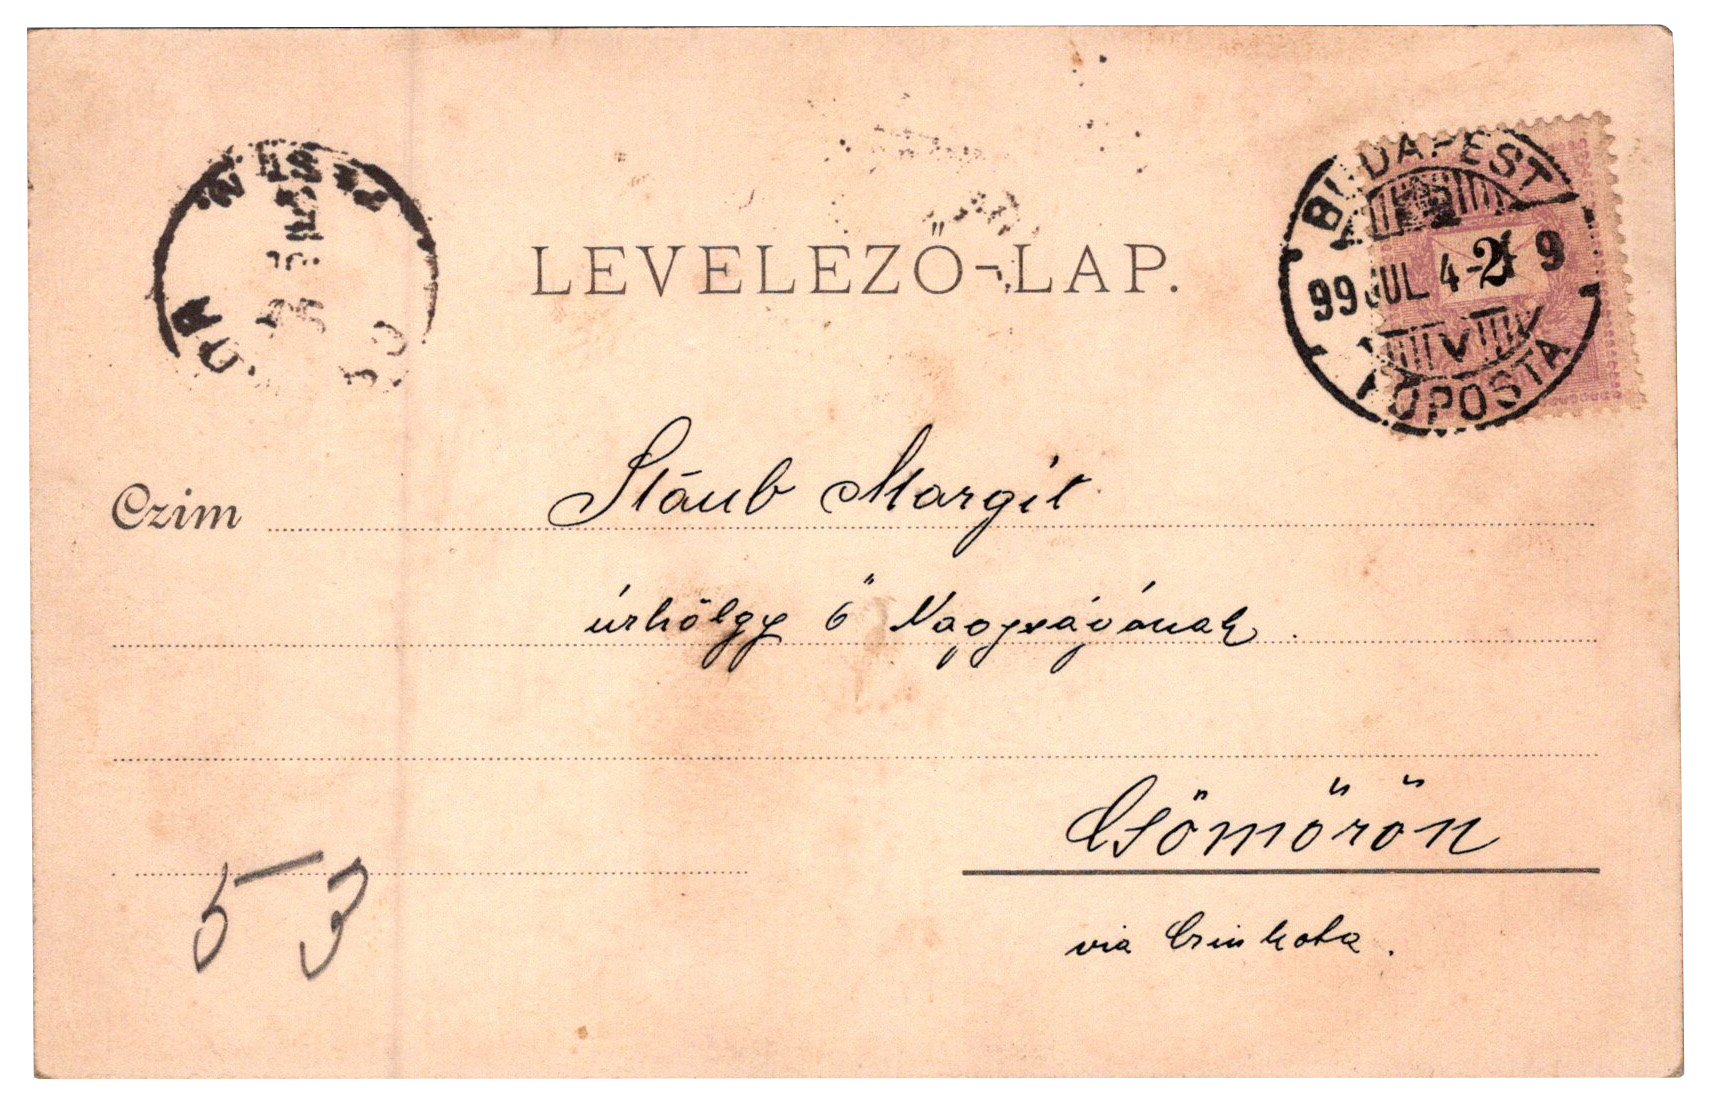 LEVELEZŐ-LAP.
BUDAPEST
99 JUL 4
9
2
V
FŐPOSTA
Czim
Stáub Margit
úrhölgy ő Nagyságának
Csömörön
via Czinkota.
53